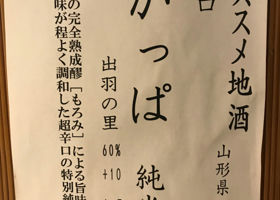 スメ地酒
山形県
口
かっぱ 純米
出羽の里 60% +10
の完全熟成醪［もろみ］による旨味
味が程よく調和した超辛口の特別純